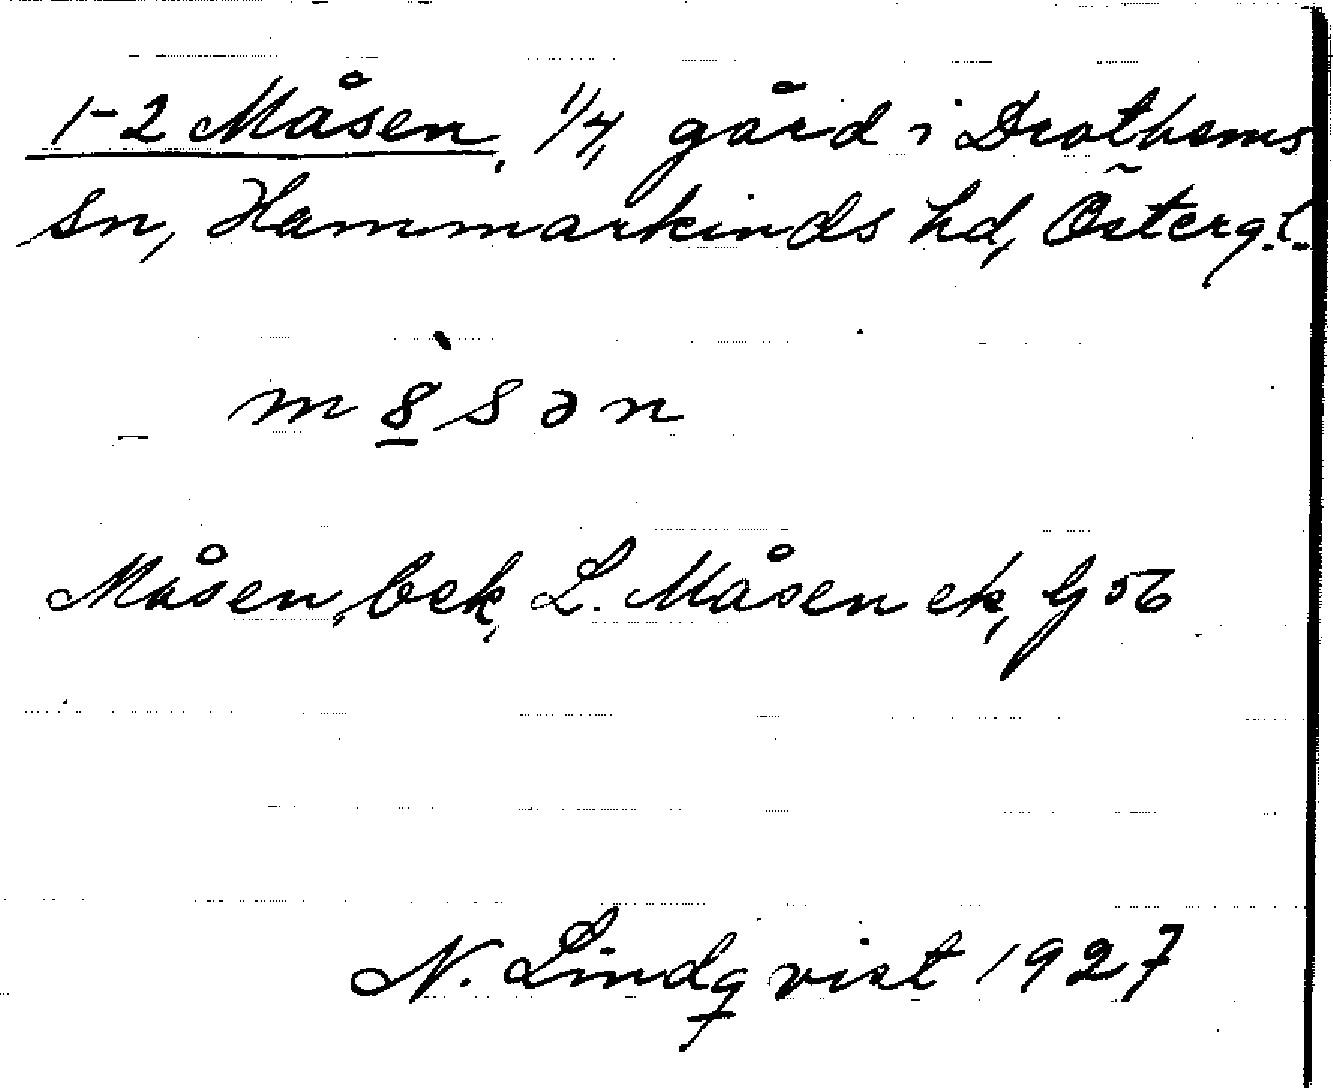 1-2 Måsen, 1/4, gård i Drothems
sn, Hammarkinds hd, Östergl.
m8̲̀sən
Måsen, bek, L. Måsen ek, G 56
N. Lindqvist 1927